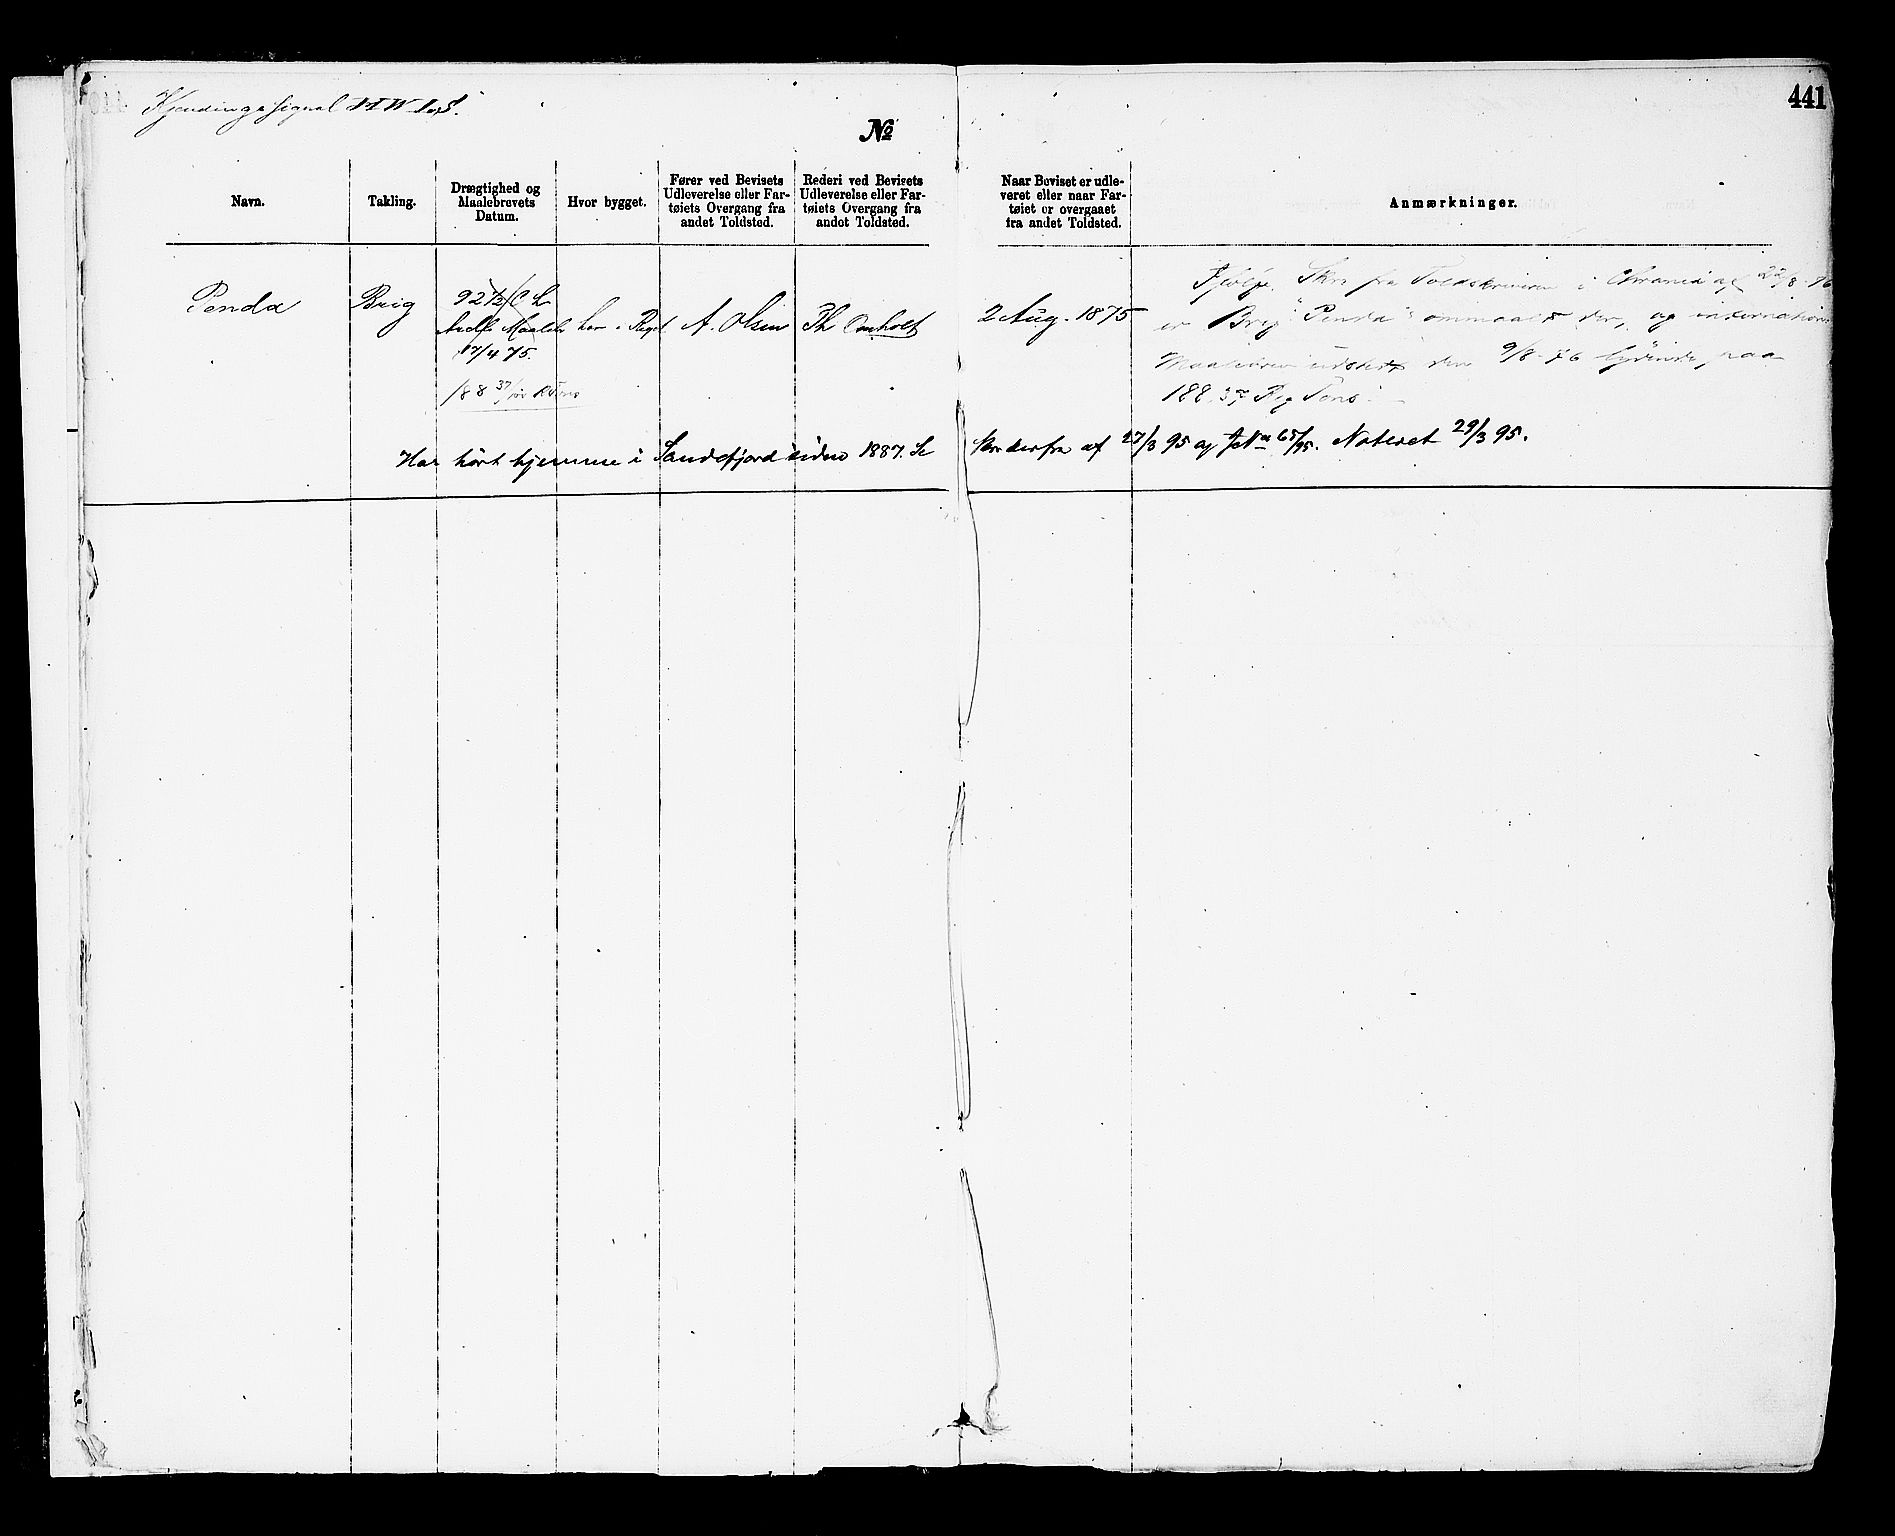 441
Kjendingssignal H.W.
№
Navn.
Takling.
Drægtighed og
Maalebrevets
Datum.
Hvor bygget.
Fører ved Bevisets
Udleverelse eller Far-
tøiets Overgang fra
andet Toldsted.
Rederi ved Bevisets
Udleverelse eller Far-
tøiets Overgang fra
andet Toldsted.
Naar Beviset er udle-
veret eller naar Far-
tøiet er overgaaet
fra andet Toldsted.
Anmærkninger.
Penda
Brig
92 1/2 C L
17/4 75.
188 37/100
her i Riget
A. Olsen
Th Omholt
2 Aug. 1875
Ifølge Skr fra Toldskriveren i Chrania af 22/8 76
er Brig "Penda" ommaalt der, og international
Maalebrev udstedt den 9/8 76 lydende paa
188.37 Reg Tons.
Har hørt hjemme i Sandefjord siden 1887. Se Skr derfra af 27/3 95 og J No 65/95. Noteret 29/3 95.